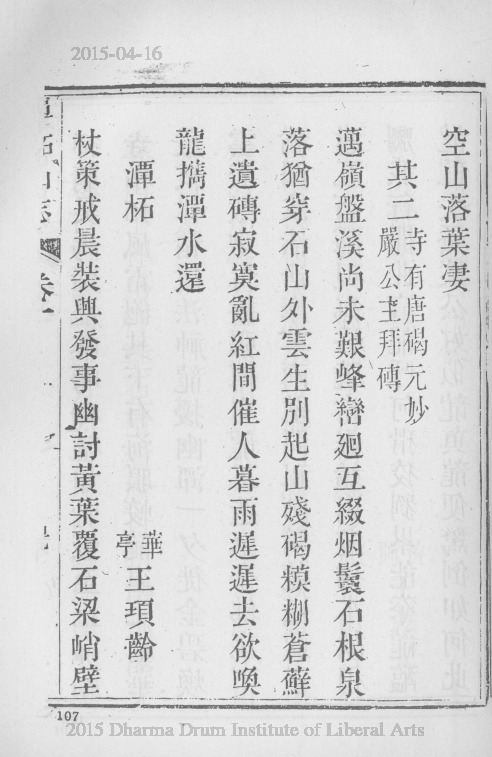 2015-04-16
空山落葉凄
其二 寺有唐碣元妙
嚴公主拜磚
邁嶺盤溪尚未艱峰巒廻互綴烟鬟石根泉
落猶穿石山外雲生別起山殘碣糢糊蒼蘚
上遺磚寂寞亂紅間催人暮雨遲遲去欲喚
龍擕潭水還
潭柘 華亭 王頊齡
杖策戒晨裝興發事幽討黃葉覆石梁峭壁
潭柘山志 卷一
107
2015 Dharma Drum Institute of Liberal Arts